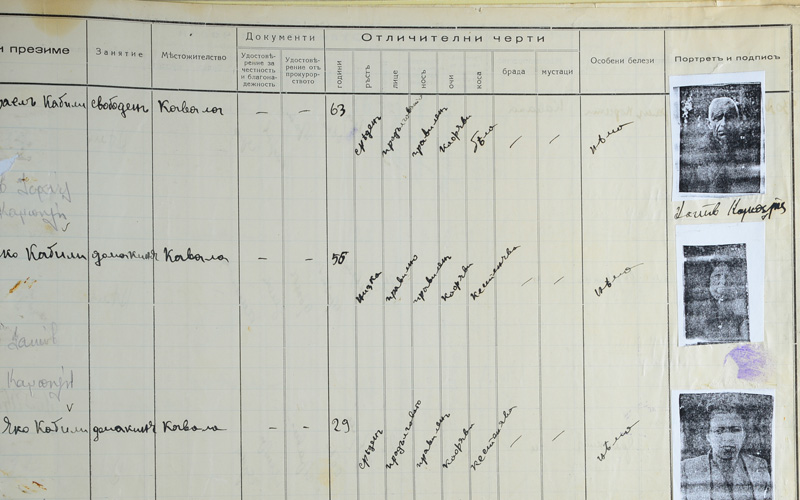 и презиме
Занятие
Мѣстожителство
Документи
Удостовѣ-
рение за
честность
и благона-
деждность
Удостовѣ-
рение отъ
прокурор-
ството
Отличителни черти
години
ръстъ
лице
носъ
очи
коса
брада
мустаци
Особени белези
Портретъ и подпись
Кабили свободенъ Кавала — — 63 срѣденъ продълговато правиленъ кафяви бѣла — — нѣма
Яко Кабили домакиня Кавала — — 56 низка правилно правиленъ кафяви кестенява — — нѣма
Яко Кабили домакиня Кавала — — 29 срѣденъ продълговато правиленъ кафяви кестенява — — нѣма